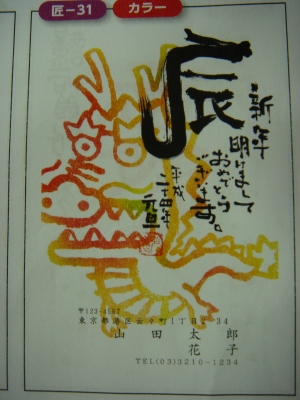 匠-31
カラー
辰
新年
明けまして
おめでとう
ございます。
平成
二十四年
元旦
〒123-4567
東京都港区云々町1丁目2-34
山田太郎
花子
TEL(03)3210-1234